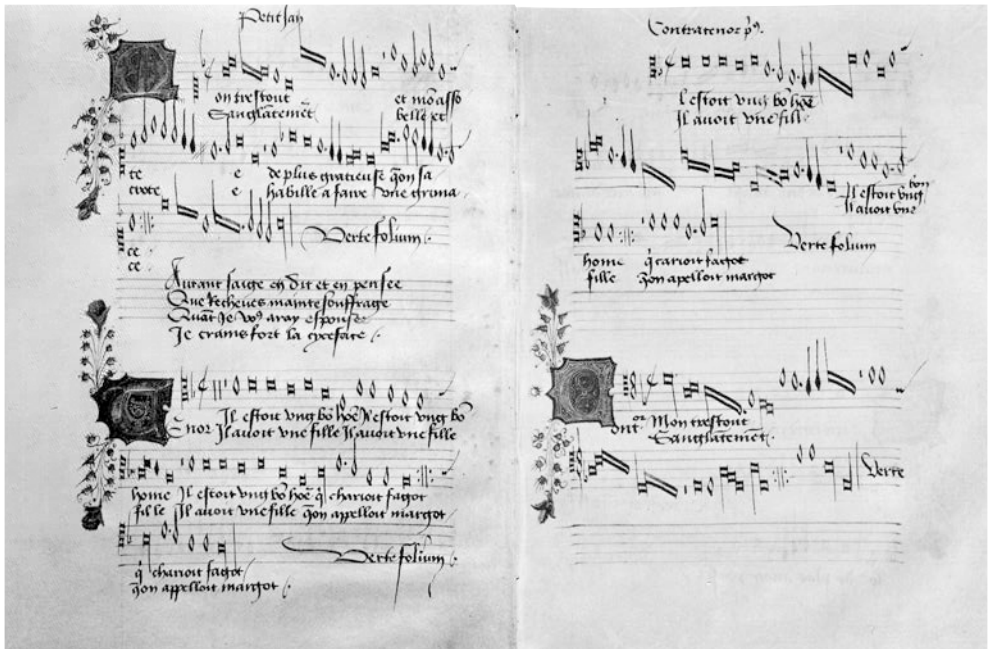 Petit Jan
on trestout et mõ asso
Sanglãtemẽt belle et
te e de plus gratieuse q̃on sa
crote e habille a faire vne grima
ce
ce
Verte folium
Autant saige en dit et en pensee
Que Recheues mainte souffrage
Quãt Je vo9 aray espousee
Je crains fort la
Il estoit vng bõ hõe Il estoit vng bõ
Enor Il auoit vne fille Il auoit vne fille
home Il estoit vng bõ hõe q̃ charioit fagot
fille Il auoit vne fille q̃on appelloit margot
q̃ charioit fagot
q̃on appelloit margot
Verte folium
Contratenor p9
l estoit vng bõ hõe
Il auoit vne fill
Il estoit vng bon
Il auoit vne
home q̃ carioit fagot
fille q̃on apelloit margot
Verte folium
ont Mon trestout
Sanglãtemẽt
Verte